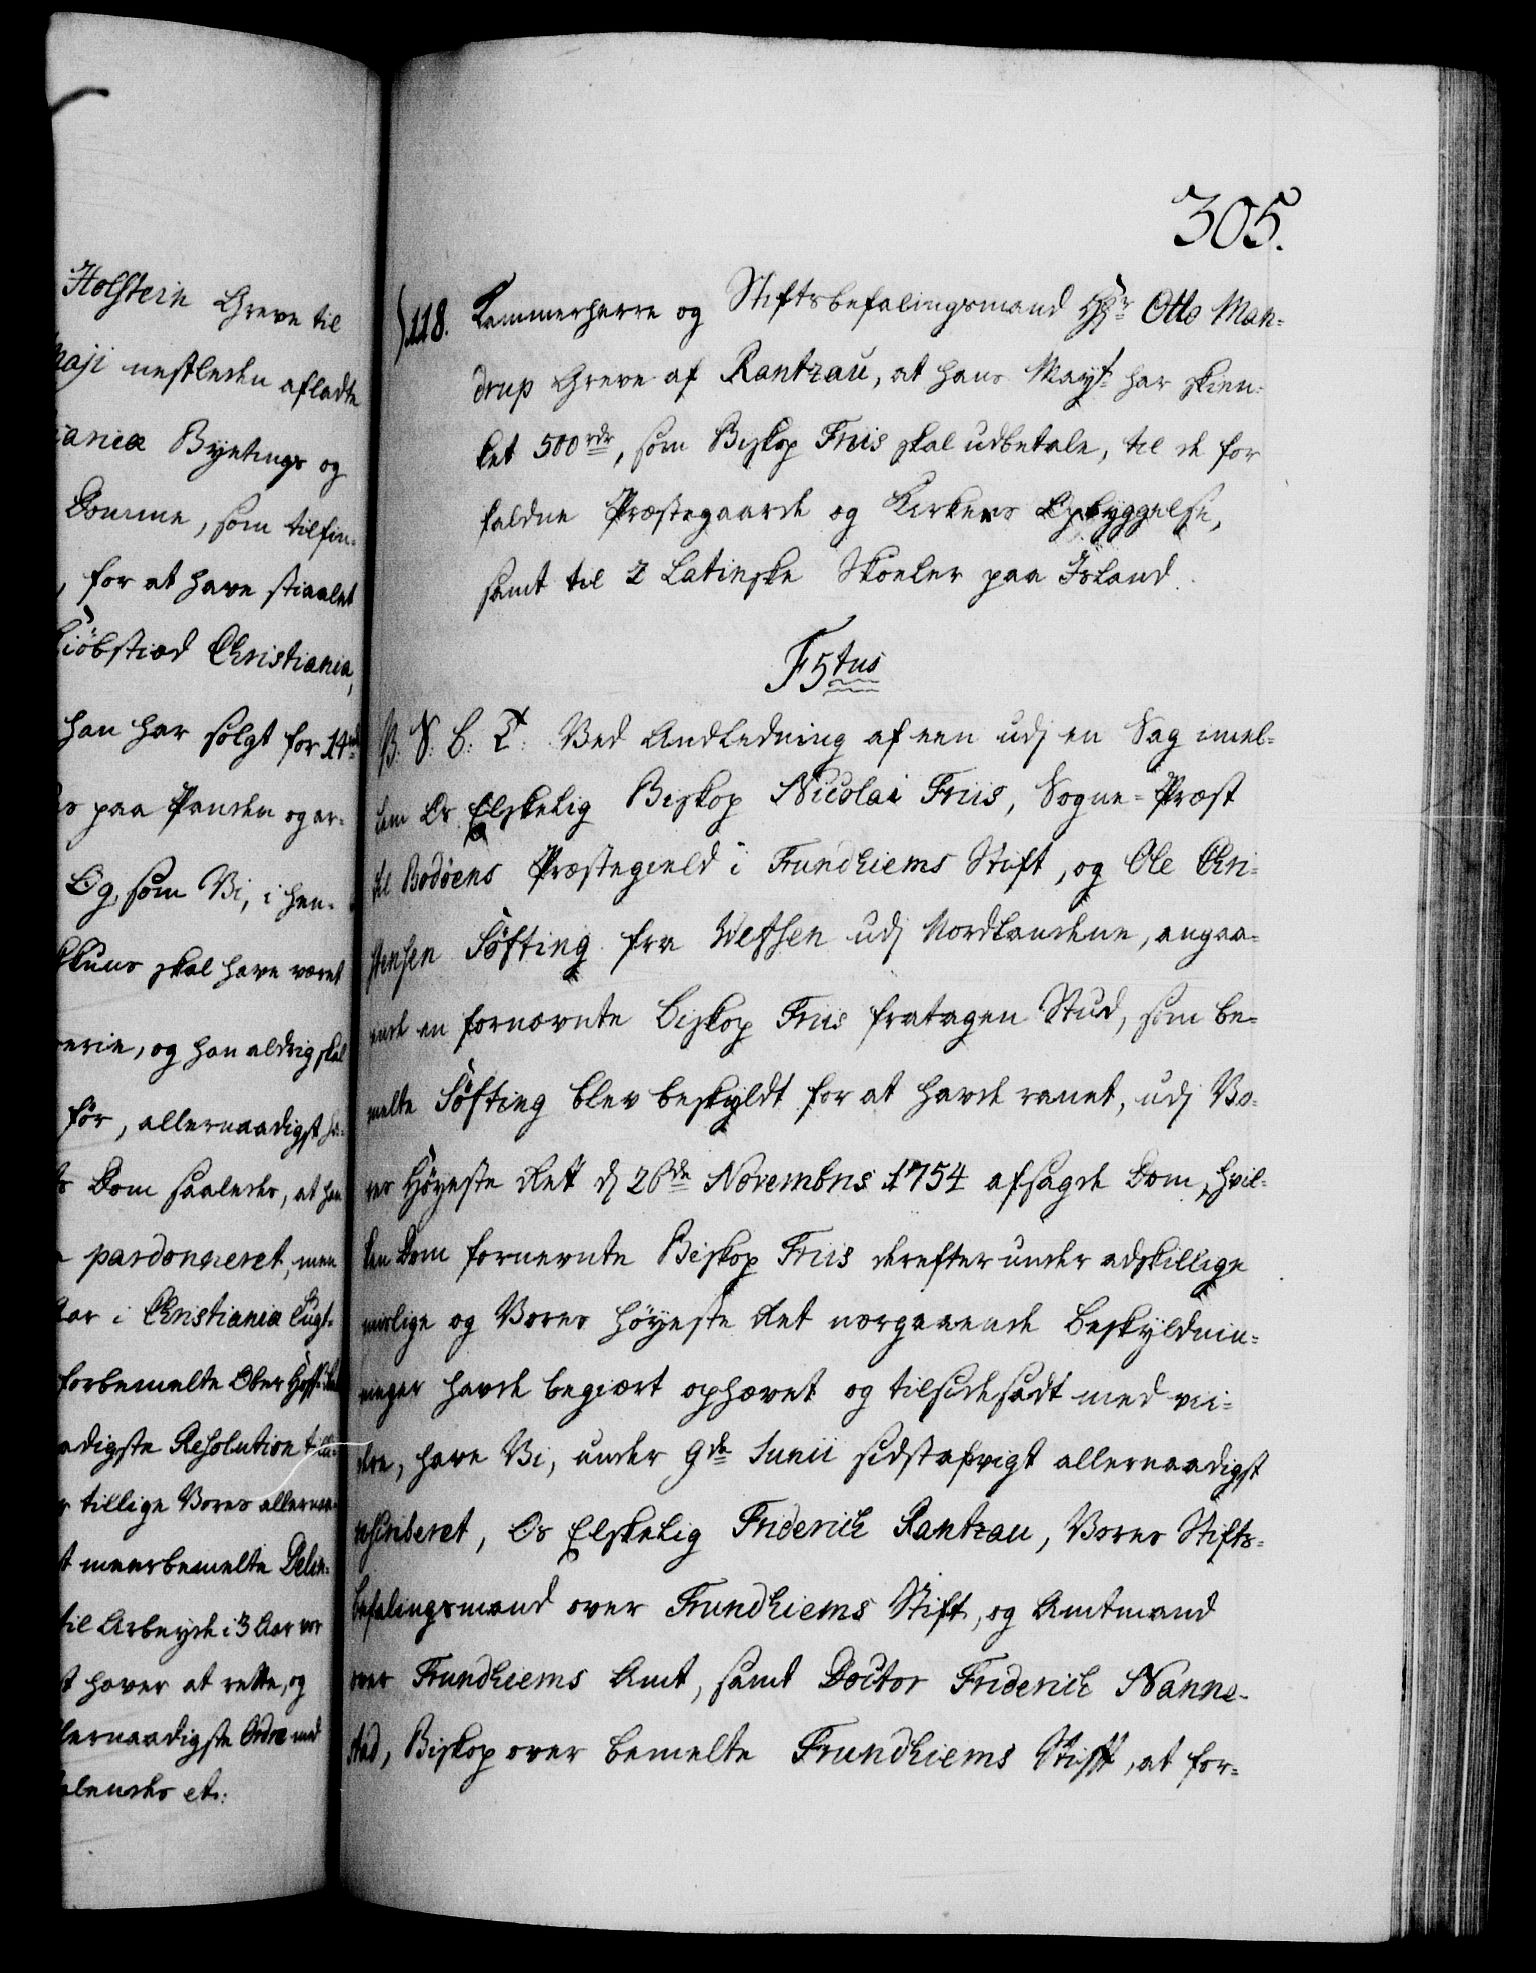 Holstein Greve til
Maji nestleden afladte
Byetings og
Domme, som tilfin-
, for at have stiaalet
Kiöbstæd Christiania,
han har solgt for 14
paa Panden og er-
Og, som Vi, i hen-
skal have været
og han aldrig skal
för, allernaadigst
Dom saaledes, at han
pardonneret, men
Aar i Christiania Tugt-
forbemelte Ober Hoff-
Resolution til-
tillige Vores allernaa-
meerbemelte Delin-
til Arbeyde i 3 Aar
haver at rette, og
allernaadigste Ordre med
etc:
305.
118. Kammerherre og Stiftsbefalingsmand Hr Otto Man-
drup Greve af Rantzau, at hans Mayt har skien-
ket 500 rdr, som Biskop Friis skal udbetale, til de for
faldne Præstegaarde og Kirkers Opbyggelse,
samt til 2 Latinske Skoeler paa Island.
F5tus
V. G: B: T: Ved Andledning af een udj en Sag imel-
lem Os Elskelig Biskop Nicolai Friis, Sogne-Præst
til Bodöens Præstegield i Trundhiems Stift, og Ole Chri-
stensen Söfting fra Wefsen udj Nordlandene, angaa-
ende en fornævnte Biskop Friis fratagen Stud, som be-
melte Söfting blev beskyldt for at havde ranet, udj Vo-
res Höyeste Rett d 26de Novembris 1754 afsagde Dom, hvil-
ken Dom fornevnte Biskop Friis derefter under adskillige
urolige og Vores höyeste Ret nærgaaende Beskyldnin-
ninger havde begiært ophævet og tilsidesadt med vii-
dre, have Vi, under 9de Junii sidstafvigt allernaadigst
rescriberet, Os Elskelig Friderich Rantzau, Vores Stifts-
befalingsmand over Trundhiems Stift, og Amtmand
over Trundhiems Amt, samt Doctor Friderich Nanne-
stad, Biskop over bemelte Trundhiems Stift, at for-